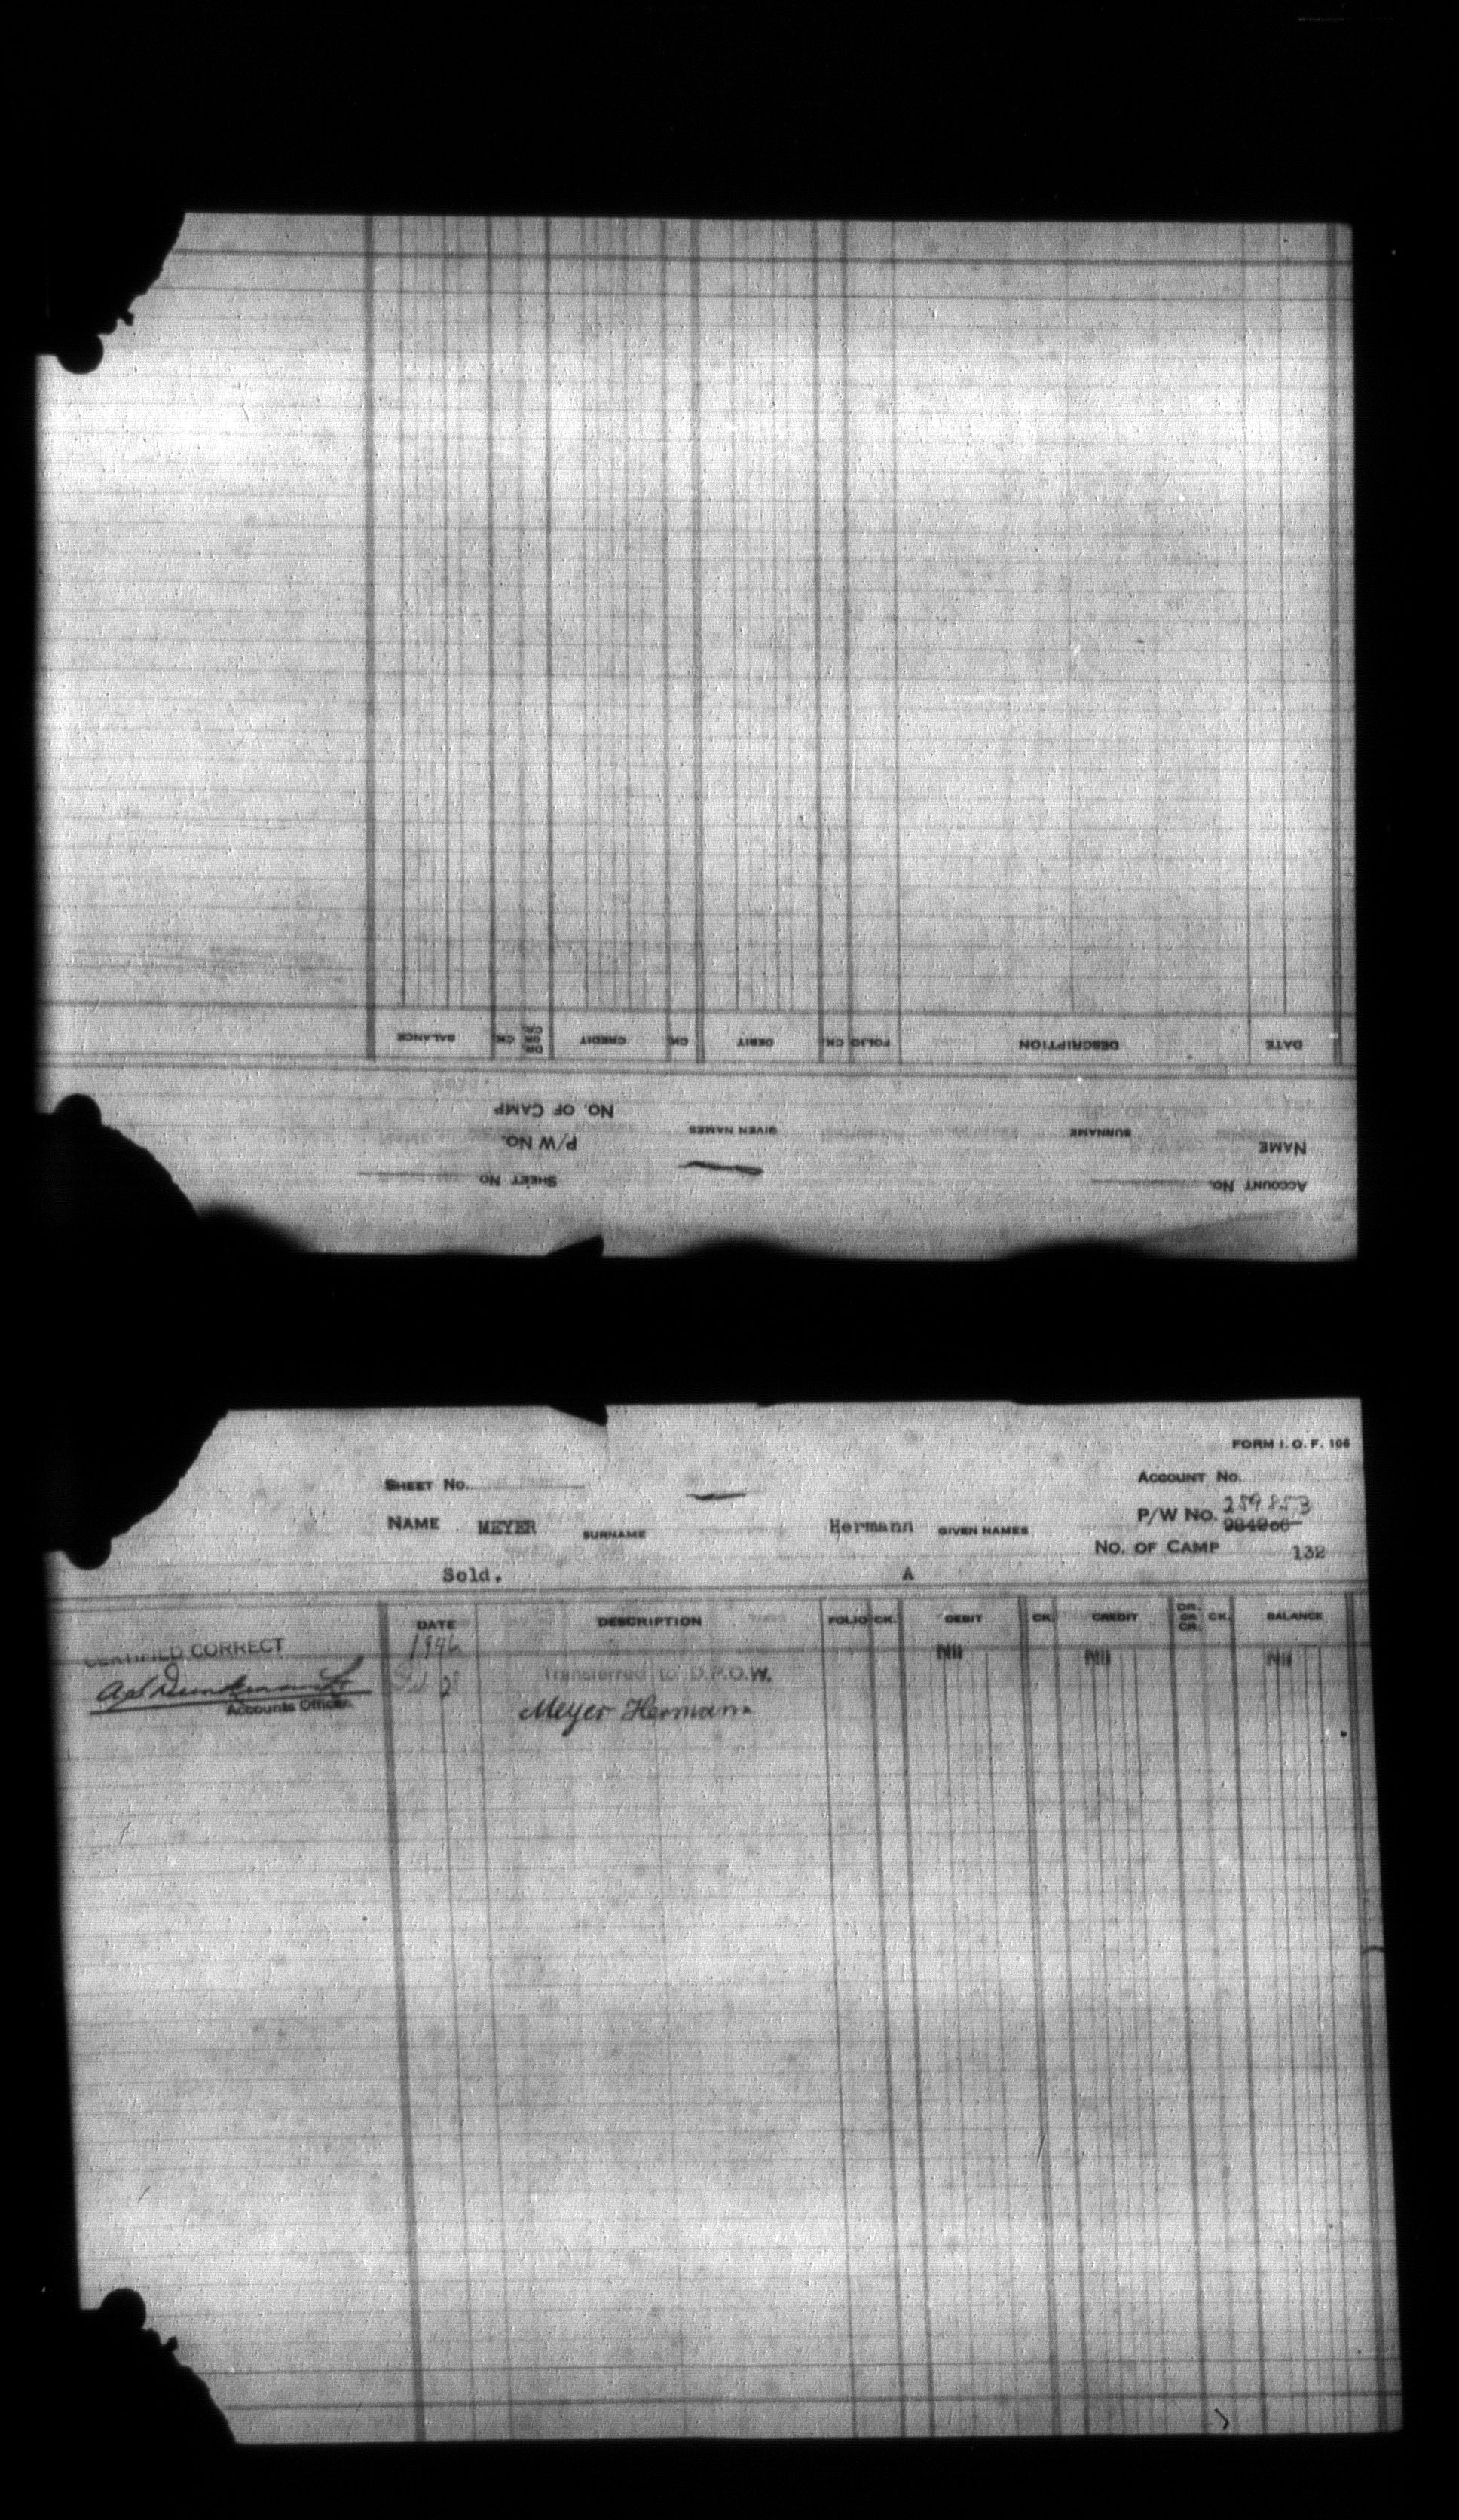 BALANCE CK. DR. OR CR. CREDIT CK. DEBIT CK. FOLIO DESCRIPTION DATE
NO. OF CAMP
P/W NO. GIVEN NAMES SURNAME NAME
SHEET NO ACCOUNT NO.
FORM I. O. F. 106
SHEET NO. ACCOUNT NO.
P/W NO. 259853
NAME MEYER SURNAME Hermann GIVEN NAMES
NO. OF CAMP 132
Sold. A
DATE DESCRIPTION FOLIO CK. DEBIT CK. CREDIT DR. OR CR. CK. BALANCE
CERTIFIED CORRECT 1946 Nil Nil Nil
Feb 28 Transferred to D.P.O.W.
Accounts Officer. Meyer Hermann